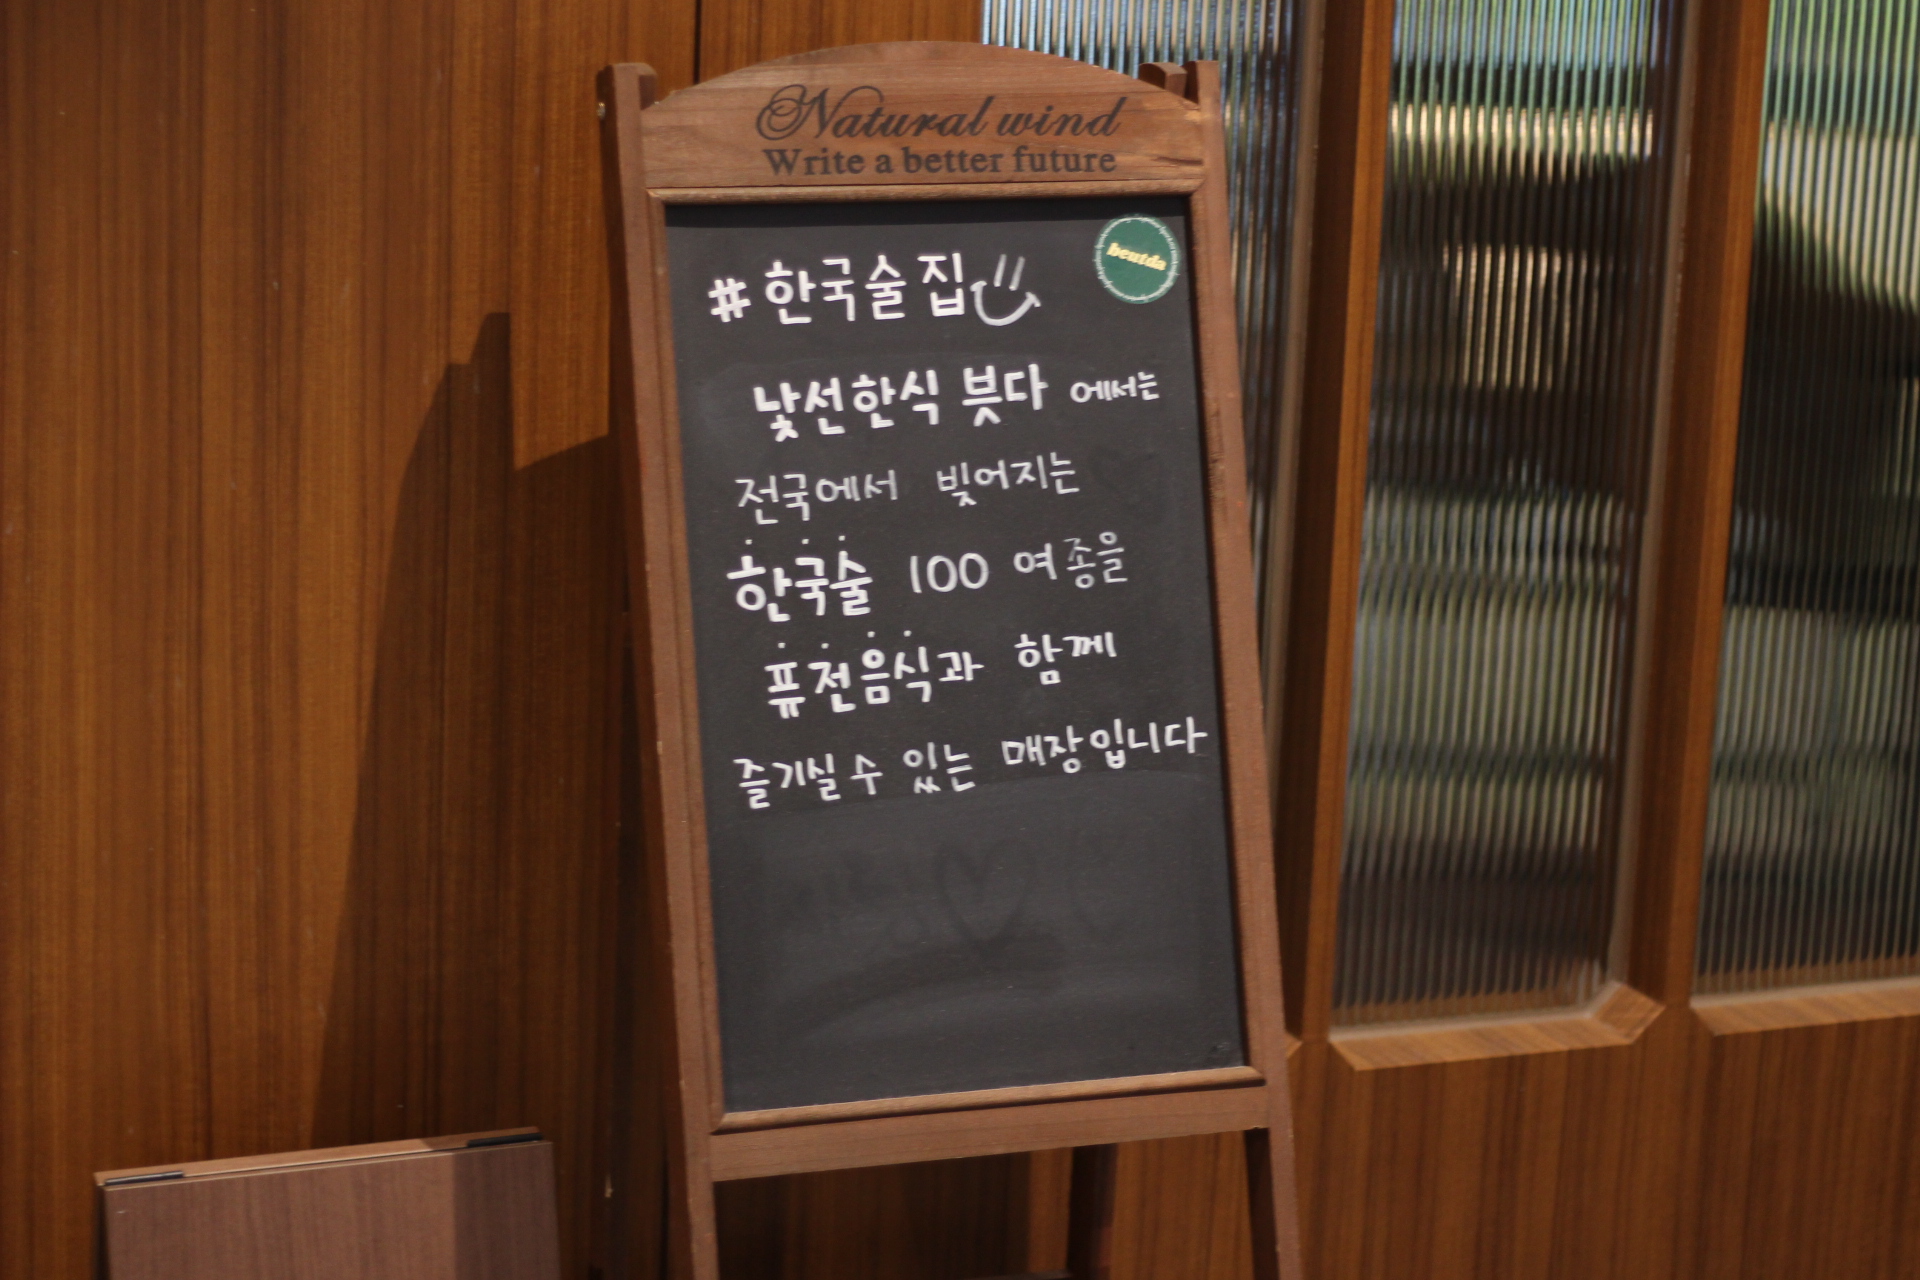 Natural wind
Write a better future
beutda
#한국술집
낯선한식 븟다 에서는
전국에서 빚어지는
한국술 100 여종을
퓨전음식과 함께
즐기실 수 있는 매장입니다